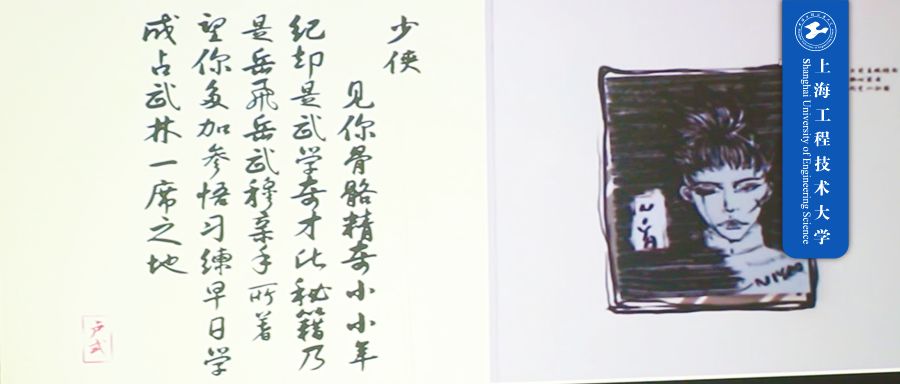 少侠
见你骨骼精奇小小年
纪却是武学奇才此秘籍乃
是岳飞岳武穆亲手所著
望你多加参悟习练早日学
成占武林一席之地
上海工程技术大学
Shanghai University of Engineering Science